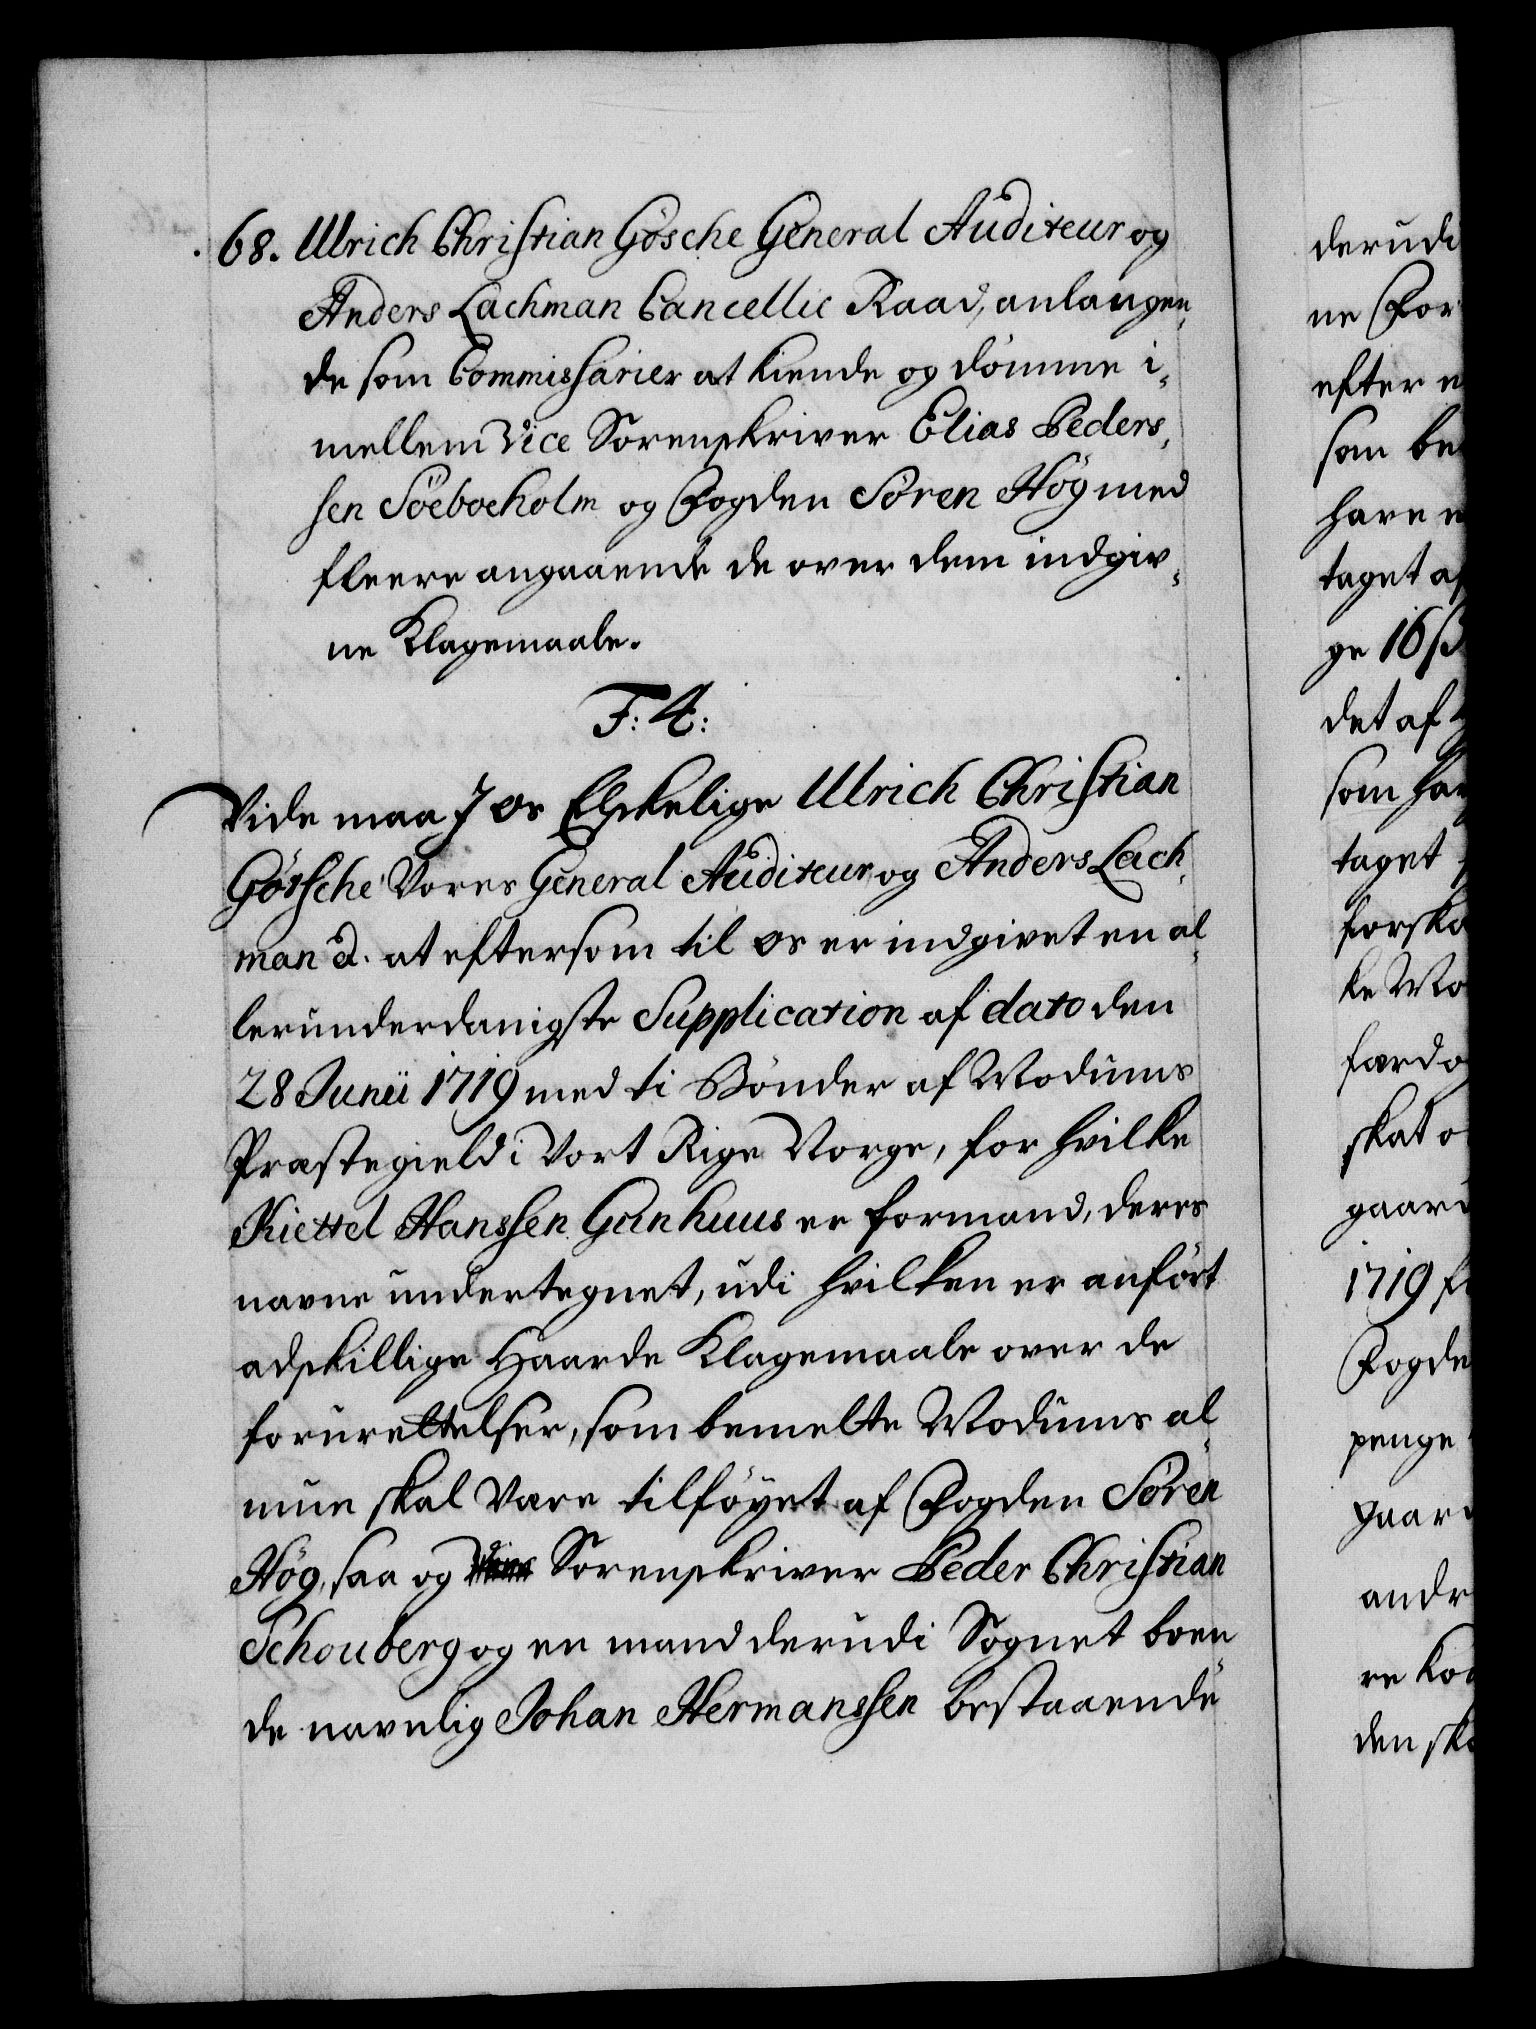 68. Ulrich Christian Gösche General Auditeur og
Anders Lachman Cancellie Raad, anlangen,
de som Commissarier at kiende og dömme i,
mellem Vice Sorenskriver Elias Peders,
sen Söeboeholm og Fogden Sören Hög med
fleere angaaende de over dem indgiv,
ne Klagemaale.
F: 4:
Vide maa I os Elskelige Ulrich Christian
Gössche Vores General Auditeur og Anders Lach,
man &. at eftersom til os er indgivet en al,
lerunderdanigste Supplication af dato den
28 Junii 1719 med ti Bönder af Modums
Præstegield i Vort Rige Norge, for hvilke
Kiettel Hanssen Gunhuus er formand, deres
navne undertegnet, udi hvilken er anfört
adskillige Haarde Klagemaale over de
forurettelser, som bemelte Modums al,
mue skal være tilföyet af Fogden Sören
Hög, saa og Sorenskriver Peder Christian
Schouberg og en mand derudi Sognet boen,
de navnlig Johan Hermanssen bestaaende
derudi
ne For
efter
som be
have
taget af
ge 16 ß
det af
som har
taget
forska
ke Mo
færd
skat o
gaar
1719
Fogde
penge
gaar
andr
re
den sk